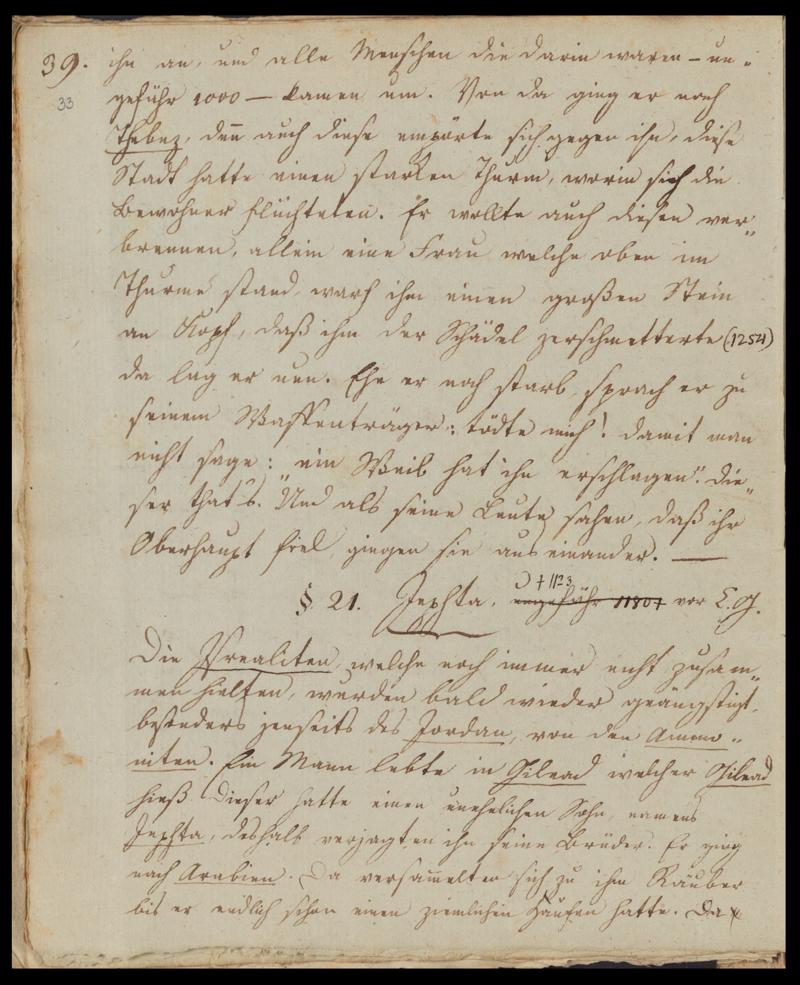 39. ihn an, und alle Menschen die darin waren – un-
33
gefähr 1000 — kamen um. Von da ging er nach
Thebez, deñ auch diese empörte sich gegen ihn, diese
Stadt hatte einen starken Thurm, worin sich die
Bewohner flüchteten. Er wollte auch diesen ver-
brennen, allein eine Frau welche oben im
Thurme stand, warf ihm einen großen Stein
an Kopf, daß ihm der Schädel zerschmetterte (1254)
da lag er nun. Ehe er noch starb, sprach er zu
seinem Waffenträger: tödte mich! damit man
nicht sage: „ein Weib hat ihn erschlagen“. Die-
ser that's. Und als seine Leute sahen, daß ihr
Oberhaupt fiel, gingen sie aus einander. —
† 1123
§. 21. Jephta, ungefähr 1180† vor C. G.
Die Isrealiten, welche noch immer nicht zusam-
men hielten, wurden bald wieder geängstigt,
besonders jenseits des Jordan, von den Ammo-
niten. Ein Mann lebte in Gilead welcher Gilead
hieß. Dieser hatte einen unehelichen Sohn, namens
Jephta, deshalb verjagten ihn seine Brüder. Er ging
nach Arabien. Da versam̃elten sich zu ihm Räuber
bis er endlich schon einen ziemlichen Haufen hatte. Da